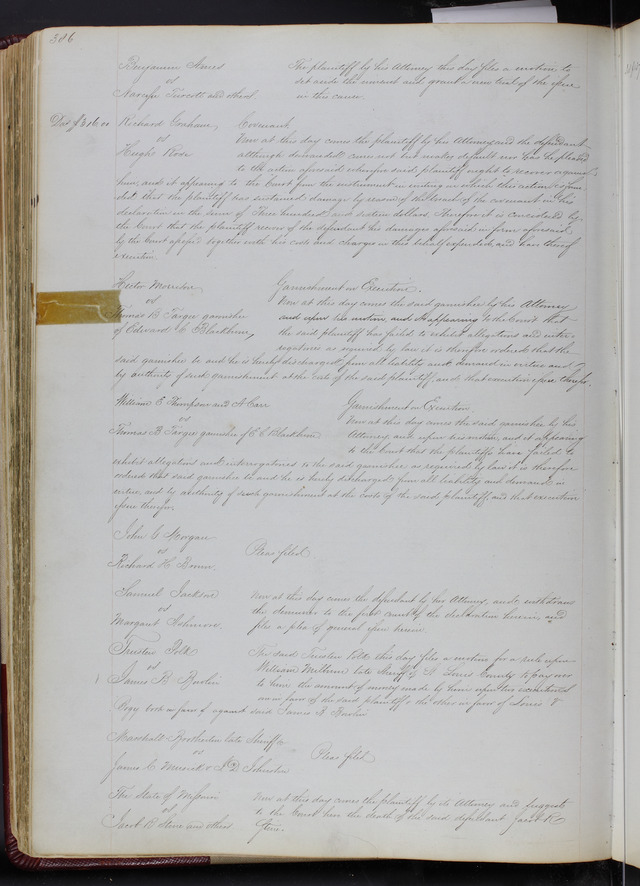 386
Benjamin Ames
vs
Narcisse Turcott and others
The plaintiff by his Attorney this day files a motion to
set aside the nonsuit and grant a new trial of the issue
in this cause.
Richard Graham,
vs
Hugh Rose
Covenant
Now at this day comes the plaintiff by his Attorney and the defendant
although demanded comes not but makes default nor has he pleaded
to the action aforesaid wherefore said plaintiff ought to recover against
him, and it appearing to the Court from the instrument in writing on which this action is foun-
ded that the plaintiff has sustained damage by reason of the breach of the covenant in the
declaration in the sum of Three hundred and sixteen dollars. Therefore it is considered by
the Court that the plaintiff recover of the defendant his damages aforesaid in form aforesaid
by the Court assessed together with his costs and charges in that behalf expended, and have thereof
execution.
Hector Morrison
vs
Thomas B Targee garnishee
of Edward C Blackburn,
Garnishment on Execution.
Now at this day comes the said garnishee by his Attorney
and upon his motion, and it appearing to the Court that
the said plaintiff has failed to exhibit allegations and inter-
rogatories as required by law it is therefore ordered that the
said garnishee be and he is hereby discharged from all liability and demand in virtue and
by authority of such garnishment at the costs of the said plaintiff, and that execution issue therefor.
William E Thompson and A Carr
vs
Thomas B Targee garnishee of E C Blackburn
Garnishment on Execution
Now at this day comes the said garnishee by his
Attorney and upon his motion, and it appearing
to the Court that the plaintiffs have failed to
exhibit allegations and interrogatories to the said garnishee as required by law it is therefore
ordered that said garnishee be and he is hereby discharged from all liability and demand in
virtue and by authority of such garnishment at the costs of the said plaintiff and that execution
issue therefor.
John C Morgan
vs
Richard H
Pleas filed
Samuel Jackson
vs
Margaret Johnson
Now at this day comes the defendant by his Attorney, and withdraws
the demurrer to the first count of the declaration herein, and
files a plea of general issue herein.
Trusten Polk
vs
James B
The said Trusten Polk this day files a motion for a rule upon
William Milburn late Sheriff of St Louis County to pay over
to him the amount of money made by him upon two executions
in favor of the said plaintiff & the other in favor of Louis V
Bogy both in favor of against said James B
Marshall Brotherton late Sheriff &c
vs
James C Musick & D Johnston
Pleas filed
The State of Missouri
vs
Jacob R Stine and others
Now at this day comes the plaintiff by its Attorney and suggests
to the Court here the death of the said defendant Jacob R
Stine.